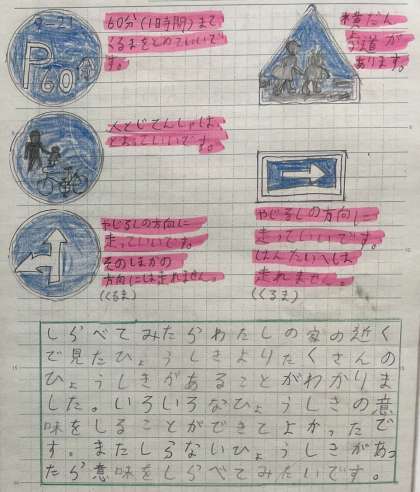 9-21
P60分
60分(1日時間)まで
くるまをとめていいで
す。
横だん
歩道が
あります。
人とじてんしゃは、
とおっていいです。
やじるしの方向に
走っていいです。
そのほかの
方向には走れません。
(くるま)
やじるしの方向に
走っていいです。
はんたいへは
走れません。
(くるま)
しらべてみたらわたしの家の近く
で見たひょうしきよりたくさんの
ひょうしきがあることがわかりま
した。いろいろなひょうしきの意
味をしることができてよかったで
す。またしらないひょうしきがあっ
たら意味をしらべてみたいです。